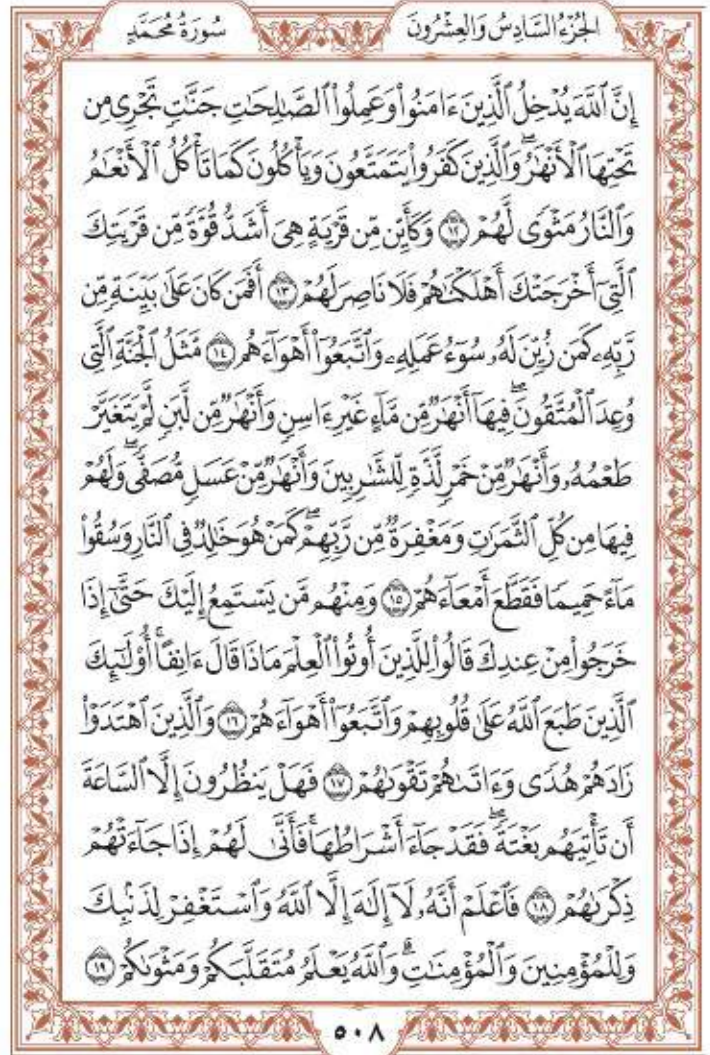 الجُزْءُ السَّادِسُ وَالعِشْرُونَ
سُورَةُ مُحَمَّدٍ
إِنَّ ٱللَّهَ يُدْخِلُ ٱلَّذِينَ ءَامَنُواْ وَعَمِلُواْ ٱلصَّٰلِحَٰتِ جَنَّٰتٖ تَجۡرِي مِن
تَحۡتِهَا ٱلۡأَنۡهَٰرُۖ وَٱلَّذِينَ كَفَرُواْ يَتَمَتَّعُونَ وَيَأۡكُلُونَ كَمَا تَأۡكُلُ ٱلۡأَنۡعَٰمُ
وَٱلنَّارُ مَثۡوٗى لَّهُمۡ ١٢ وَكَأَيِّن مِّن قَرۡيَةٍ هِيَ أَشَدُّ قُوَّةٗ مِّن قَرۡيَتِكَ
ٱلَّتِيٓ أَخۡرَجَتۡكَ أَهۡلَكۡنَٰهُمۡ فَلَا نَاصِرَ لَهُمۡ ١٣ أَفَمَن كَانَ عَلَىٰ بَيِّنَةٖ مِّن
رَّبِّهِۦ كَمَن زُيِّنَ لَهُۥ سُوٓءُ عَمَلِهِۦ وَٱتَّبَعُوٓاْ أَهۡوَآءَهُم ١٤ مَّثَلُ ٱلۡجَنَّةِ ٱلَّتِي
وُعِدَ ٱلۡمُتَّقُونَۖ فِيهَآ أَنۡهَٰرٞ مِّن مَّآءٍ غَيۡرِ ءَاسِنٖ وَأَنۡهَٰرٞ مِّن لَّبَنٖ لَّمۡ يَتَغَيَّرۡ
طَعۡمُهُۥ وَأَنۡهَٰرٞ مِّنۡ خَمۡرٖ لَّذَّةٖ لِّلشَّٰرِبِينَ وَأَنۡهَٰرٞ مِّنۡ عَسَلٖ مُّصَفّٗىۖ وَلَهُمۡ
فِيهَا مِن كُلِّ ٱلثَّمَرَٰتِ وَمَغۡفِرَةٞ مِّن رَّبِّهِمۡۖ كَمَنۡ هُوَ خَٰلِدٞ فِي ٱلنَّارِ وَسُقُواْ
مَآءً حَمِيمٗا فَقَطَّعَ أَمۡعَآءَهُمۡ ١٥ وَمِنۡهُم مَّن يَسۡتَمِعُ إِلَيۡكَ حَتَّىٰٓ إِذَا
خَرَجُواْ مِنۡ عِندِكَ قَالُواْ لِلَّذِينَ أُوتُواْ ٱلۡعِلۡمَ مَاذَا قَالَ ءَانِفًاۚ أُوْلَٰٓئِكَ
ٱلَّذِينَ طَبَعَ ٱللَّهُ عَلَىٰ قُلُوبِهِمۡ وَٱتَّبَعُوٓاْ أَهۡوَآءَهُمۡ ١٦ وَٱلَّذِينَ ٱهۡتَدَوۡاْ
زَادَهُمۡ هُدٗى وَءَاتَىٰهُمۡ تَقۡوَىٰهُمۡ ١٧ فَهَلۡ يَنظُرُونَ إِلَّا ٱلسَّاعَةَ
أَن تَأۡتِيَهُم بَغۡتَةٗۖ فَقَدۡ جَآءَ أَشۡرَاطُهَاۚ فَأَنَّىٰ لَهُمۡ إِذَا جَآءَتۡهُمۡ
ذِكۡرَىٰهُمۡ ١٨ فَٱعۡلَمۡ أَنَّهُۥ لَآ إِلَٰهَ إِلَّا ٱللَّهُ وَٱسۡتَغۡفِرۡ لِذَنۢبِكَ
وَلِلۡمُؤۡمِنِينَ وَٱلۡمُؤۡمِنَٰتِۗ وَٱللَّهُ يَعۡلَمُ مُتَقَلَّبَكُمۡ وَمَثۡوَىٰكُمۡ ١٩
٥٠٨